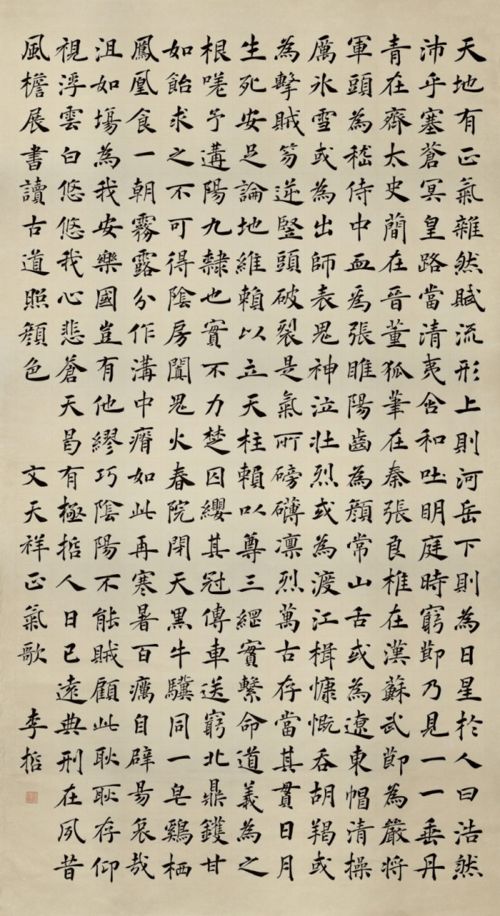 天地有正氣雜然賦流形上則河岳下則為日星於人曰浩然
沛乎塞蒼冥皇路當清夷含和吐明庭時窮節乃見一一垂丹
青在齊太史簡在晉董狐筆在秦張良椎在漢蘇武節為嚴將
軍頭為嵇侍中血為張睢陽齒為顏常山舌或為遼東帽清操
厲冰雪或為出師表鬼神泣壯烈或為渡江楫慷慨吞胡羯或
為擊賊笏逆豎頭破裂是氣所磅礴凜烈萬古存當其貫日月
生死安足論地維賴以立天柱賴以尊三綱實繫命道義為之
根嗟予遘陽九隸也實不力楚囚纓其冠傳車送窮北鼎鑊甘
如飴求之不可得陰房闃鬼火春院閉天黑牛驥同一皂鷄栖
鳳凰食一朝霧露分作溝中瘠如此再寒暑百癘自辟易哀哉
沮如場為我安樂國豈有他繆巧陰陽不能賊顧此耿耿存仰
視浮雲白悠悠我心悲蒼天曷有極哲人日已遠典刑在夙昔
風檐展書讀古道照顏色 文天祥正氣歌 李哲